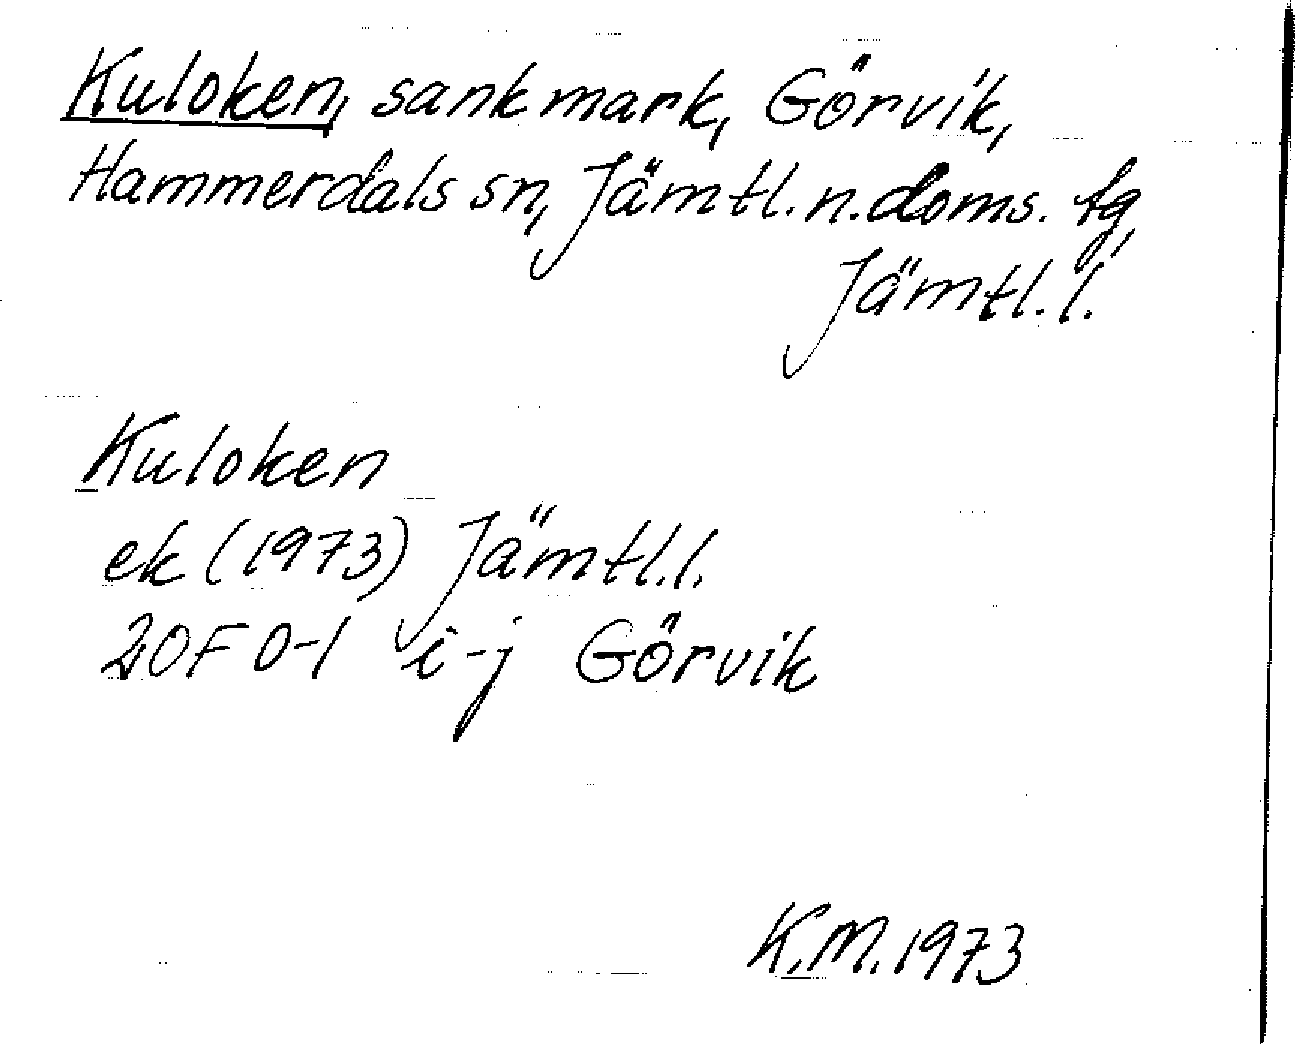 Kuloken, sankmark, Görvik,
Hammerdals sn, Jämtl. n. doms. tg,
Jämtl. l.
Kuloken
ek (1973) Jämtl. l.
20F 0-1 i-j Görvik
K.M. 1973